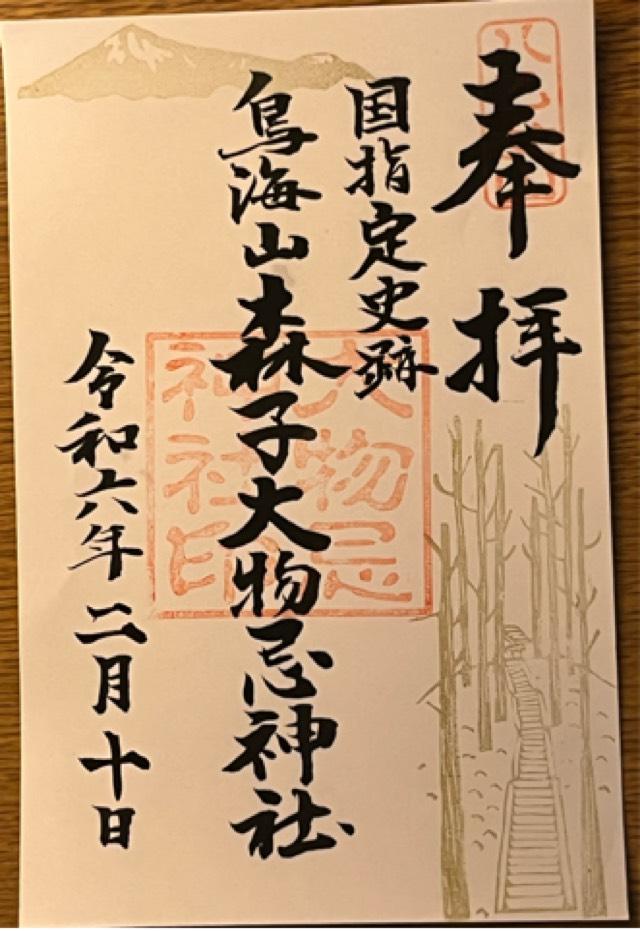 奉拝
国指定史跡
鳥海山森子大物忌神社
令和六年二月十日
大物忌
神社印